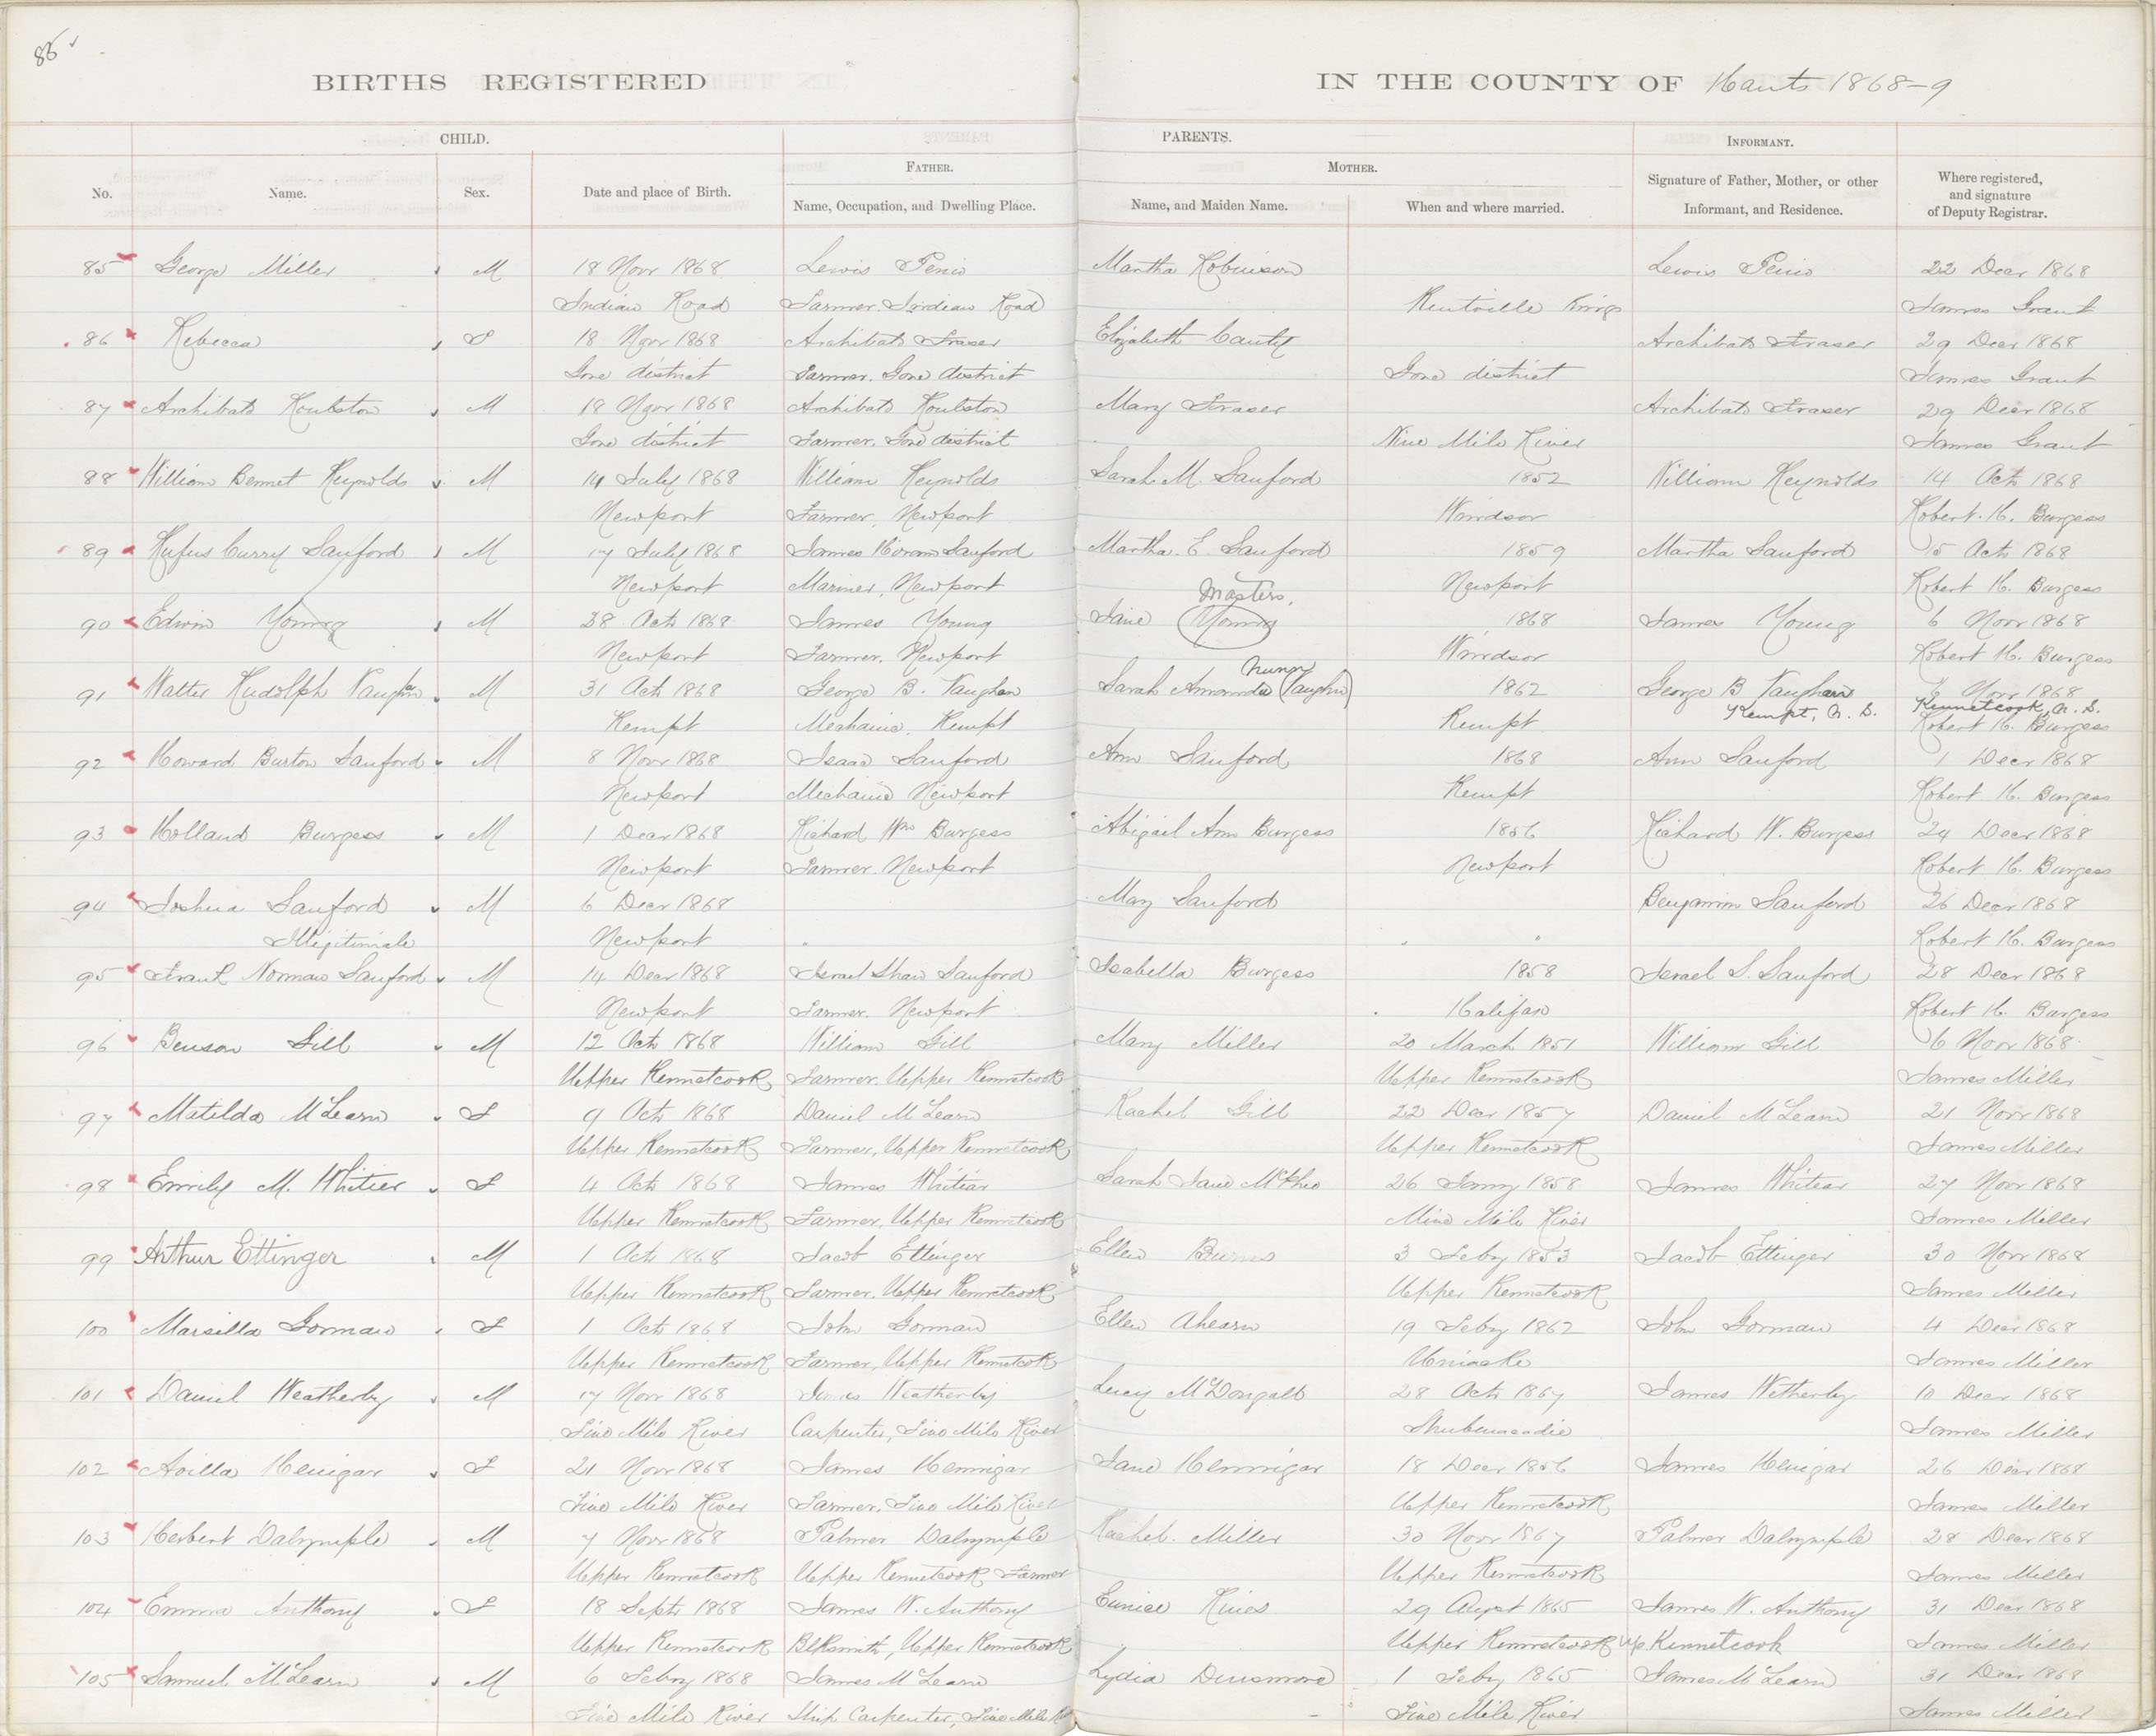 86
BIRTHS REGISTERED IN THE COUNTY OF Hants 1868-9
CHILD. PARENTS. INFORMANT.
FATHER. MOTHER.
No. Name. Sex. Date and place of Birth. Name, Occupation, and Dwelling Place. Name, and Maiden Name. When and where married. Signature of Father, Mother, or other Informant, and Residence. Where registered, and signature of Deputy Registrar.
85 George Miller M 18 Novr 1868 Lewis Martha Robinson Lewis 22 Decr 1868
Indian Road Farmer. Indian Road Kentville Kings James Grant
86 Rebecca F 18 Novr 1868 Archibald Fraser Elizabeth Archibald Fraser 29 Decr 1868
Gore district Farmer. Gore district Gore district James Grant
87 Archibald Roulston M 18 Novr 1868 Archibald Roulston Mary Fraser Archibald Fraser 29 Decr 1868
Gore district Farmer. Gore district Nine Mile River James Grant
88 William Bennet Reynolds M 14 July 1868 William Reynolds Sarah M. Sanford 1852 William Reynolds 14 Octr 1868
Newport Farmer, Newport Windsor Robert H. Burgess
89 Rufus Curry Sanford M 17 July 1868 James Hiram Sanford Martha E. Sanford 1859 Martha Sanford 15 Octr 1868
Newport Mariner, Newport Newport Robert H. Burgess
Masters,
90 Edwin Young M 28 Octr 1868 James Young Jane Young 1868 James Young 6 Novr 1868
Newport Farmer. Newport Windsor Robert H. Burgess
91 Walter Rudolph Vaughan M 31 Octr 1868 George B. Vaughan Sarah Amanda (Vaughn) 1862 George B Vaughan 6 Novr 1868
Kempt, N. S. Kennetcook, N. S.
Kempt Mechanic, Kempt Kempt Robert H. Burgess
92 Howard Burton Sanford M 8 Novr 1868 Isaac Sanford Ann Sanford 1868 Ann Sanford 1 Decr 1868
Newport Mechanic Newport Kempt Robert H. Burgess
93 Holland Burgess M 1 Decr 1868 Richard Wm Burgess Abigail Ann Burgess 1856 Richard W. Burgess 24 Decr 1868
Newport Farmer. Newport Newport Robert H. Burgess
94 Joshua Sanford M 6 Decr 1868 Mary Sanford Benjamin Sanford 26 Decr 1868
Illigitimate Newport Robert H. Burgess
95 Frank Norman Sanford M 14 Decr 1868 Israel Shaw Sanford Isabella Burgess 1858 Israel S. Sanford 28 Decr 1868
Newport Farmer. Newport Halifax Robert H. Burgess
96 Benson Gill M 12 Octr 1868 William Gill Mary Miller 20 March 1851 William Gill 6 Novr 1868
Upper Kennetcook Farmer. Upper Kennetcook Upper Kennetcook James Miller
97 Matilda McLearn F 9 Octr 1868 Daniel McLearn Rachel Gill 22 Decr 1857 Daniel McLearn 21 Novr 1868
Upper Kennetcook Farmer, Upper Kennetcook Upper Kennetcook James Miller
98 Emily M. Whitier F 4 Octr 1868 James Whitier Sarah Jane McPhee 26 Jany 1858 James Whitier 27 Novr 1868
Upper Kennetcook Farmer, Upper Kennetcook Nine Mile River James Miller
99 Arthur Ettinger M 1 Octr 1868 Jacob Ettinger Ellen Burns 3 Feby 1853 Jacob Ettinger 30 Novr 1868
Upper Kennetcook Farmer. Upper Kennetcook Upper Kennetcook James Miller
100 Marsilla Gorman F 1 Octr 1868 John Gorman Ellen Ahearn 19 Feby 1862 John Gorman 4 Decr 1868
Upper Kennetcook Farmer, Upper Kennetcook Uniacke James Miller
101 Daniel Weatherby M 17 Novr 1868 James Weatherby Lucy McDougald 28 Octr 1867 James Wetherby 10 Decr 1868
Five Mile River Carpenter, Five Mile River Shubenacadie James Miller
102 Avilla Henigar F 21 Novr 1868 James Hennigar Jane Hennigar 18 Decr 1856 James Henigar 26 Decr 1868
Five Mile River Farmer, Five Mile River Upper Kennetcook James Miller
103 Herbert Dalrymple M 7 Novr 1868 Palmer Dalrymple Rachel Miller 30 Novr 1867 Palmer Dalrymple 28 Decr 1868
Upper Kennetcook Upper Kennetcook Farmer Upper Kennetcook James Miller
104 Emma Anthony F 18 Septr 1868 James W. Anthony Eunice Hines 29 Augst 1865 James W. Anthony 31 Decr 1868
Upper Kennetcook Blksmith, Upper Kennetcook Upper Kennetcook Up Kennetcook James Miller
105 Samuel McLearn M 6 Feby 1868 James McLearn Lydia Dinsmore 1 Feby 1865 James McLearn 31 Decr 1868
Five Mile River Ship Carpenter, Five Mile Five Mile River James Miller